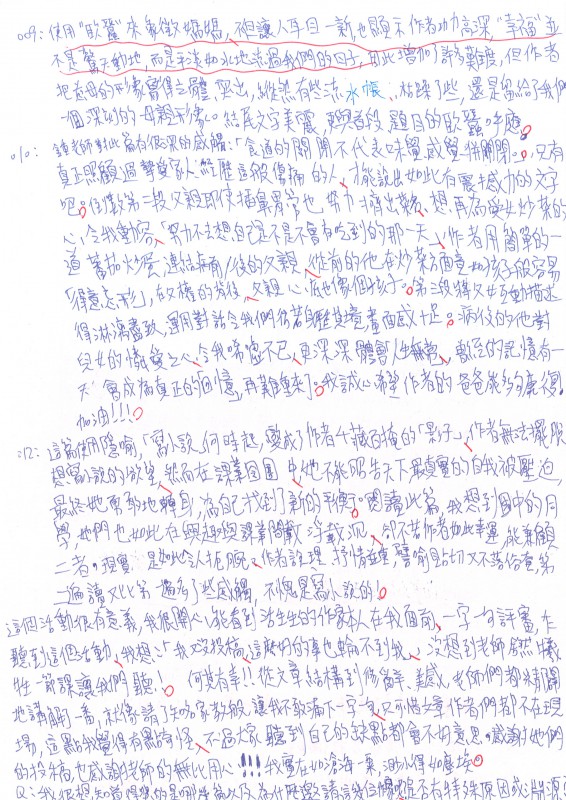 009：使用"歐蠶"來象徵媽媽，不但讓人耳目一新，也顯示作者功力高深，"幸福"並
不是驚天動地，而是平淡如水地流過我們的日子，因此增加了許多難度，但作者
把母的形象寫得立體、突出，縱然有些流水帳、枯躁了些，還是留給了我們
一個深刻的母親形象。結尾文字美麗，更與首段、題目的歐蠶呼應。
010：鍾老師對此篇有很深的感觸：「食道的關閉不代表味覺感覺併關閉。」只有
真正照顧過摯愛家人、經歷這般傷痛的人，才能說出如此有震撼力的文字
吧。倒數第二段父親即使插鼻胃管也努力擠出笑，想再為愛女炒菜的
心，令我動容、「努力不去想自己是不是不會有吃到的那一天」，作者用簡單的一
道蕃茄炒蛋，連結病前/後的父親，從前的他在炒菜方面竟如孩子般容易
「得意忘形」，在父權的背後，父親心底也像個孩子。第三段將父女互動描述
得淋漓盡致，運用對話令我們彷若身歷其境畫面感十足。病後的他對
兒女的憐愛之心，令我唏噓不已，更深深體會人生無常，數的記憶有一
天會成為真正的「回憶，再難重來」。我誠心希望作者的爸爸能夠康復
加油!!!
012：這篇使用隱喻，「寫小說」何時起，變成了作者千藏百掩的「影子」，作者無法擺脫
想寫小說的慾望，然而在課業團團中她不能昭告天下最真實的自我被壓迫，
最終她勇敢地轉身，為自己找到了新的平衡。閱讀此篇，我想到國中的同
學，她們也如此在興趣與課業間載浮載沉，卻不若作者如此幸運，能兼顧
二者。現實是如此令人扼腕。作者說理、抒情並重，譬喻貼切又不落俗套，第
二遍讀又比第一遍多了些感觸，不愧是寫小說的!
這個活動很有意義，我很開心能看到活生生的作家本人在我面前，一字一句評審，乍
聽到這個活動，我想：「我又沒投稿，這麼好的事也輪不到我」，沒想到老師居然犧
牲一節課讓我們聽!。何其有幸!!從文章結構到修辭、美感，老師們都清開
地講解一番，就像請了知名家教般，讓我不敢漏下一字一句，只可惜文章作者們都不在現
場，這點我覺得有點奇怪，不過大家聽到自己的缺點都會不好意思。感謝她們
的投稿，也感謝老師的無比用心!!!我實在如滄海一粟，渺小得如塵埃。
Q：我很想知道得獎的是哪幾篇以及為什麼邀請這幾位，是否有特殊原因或淵源？